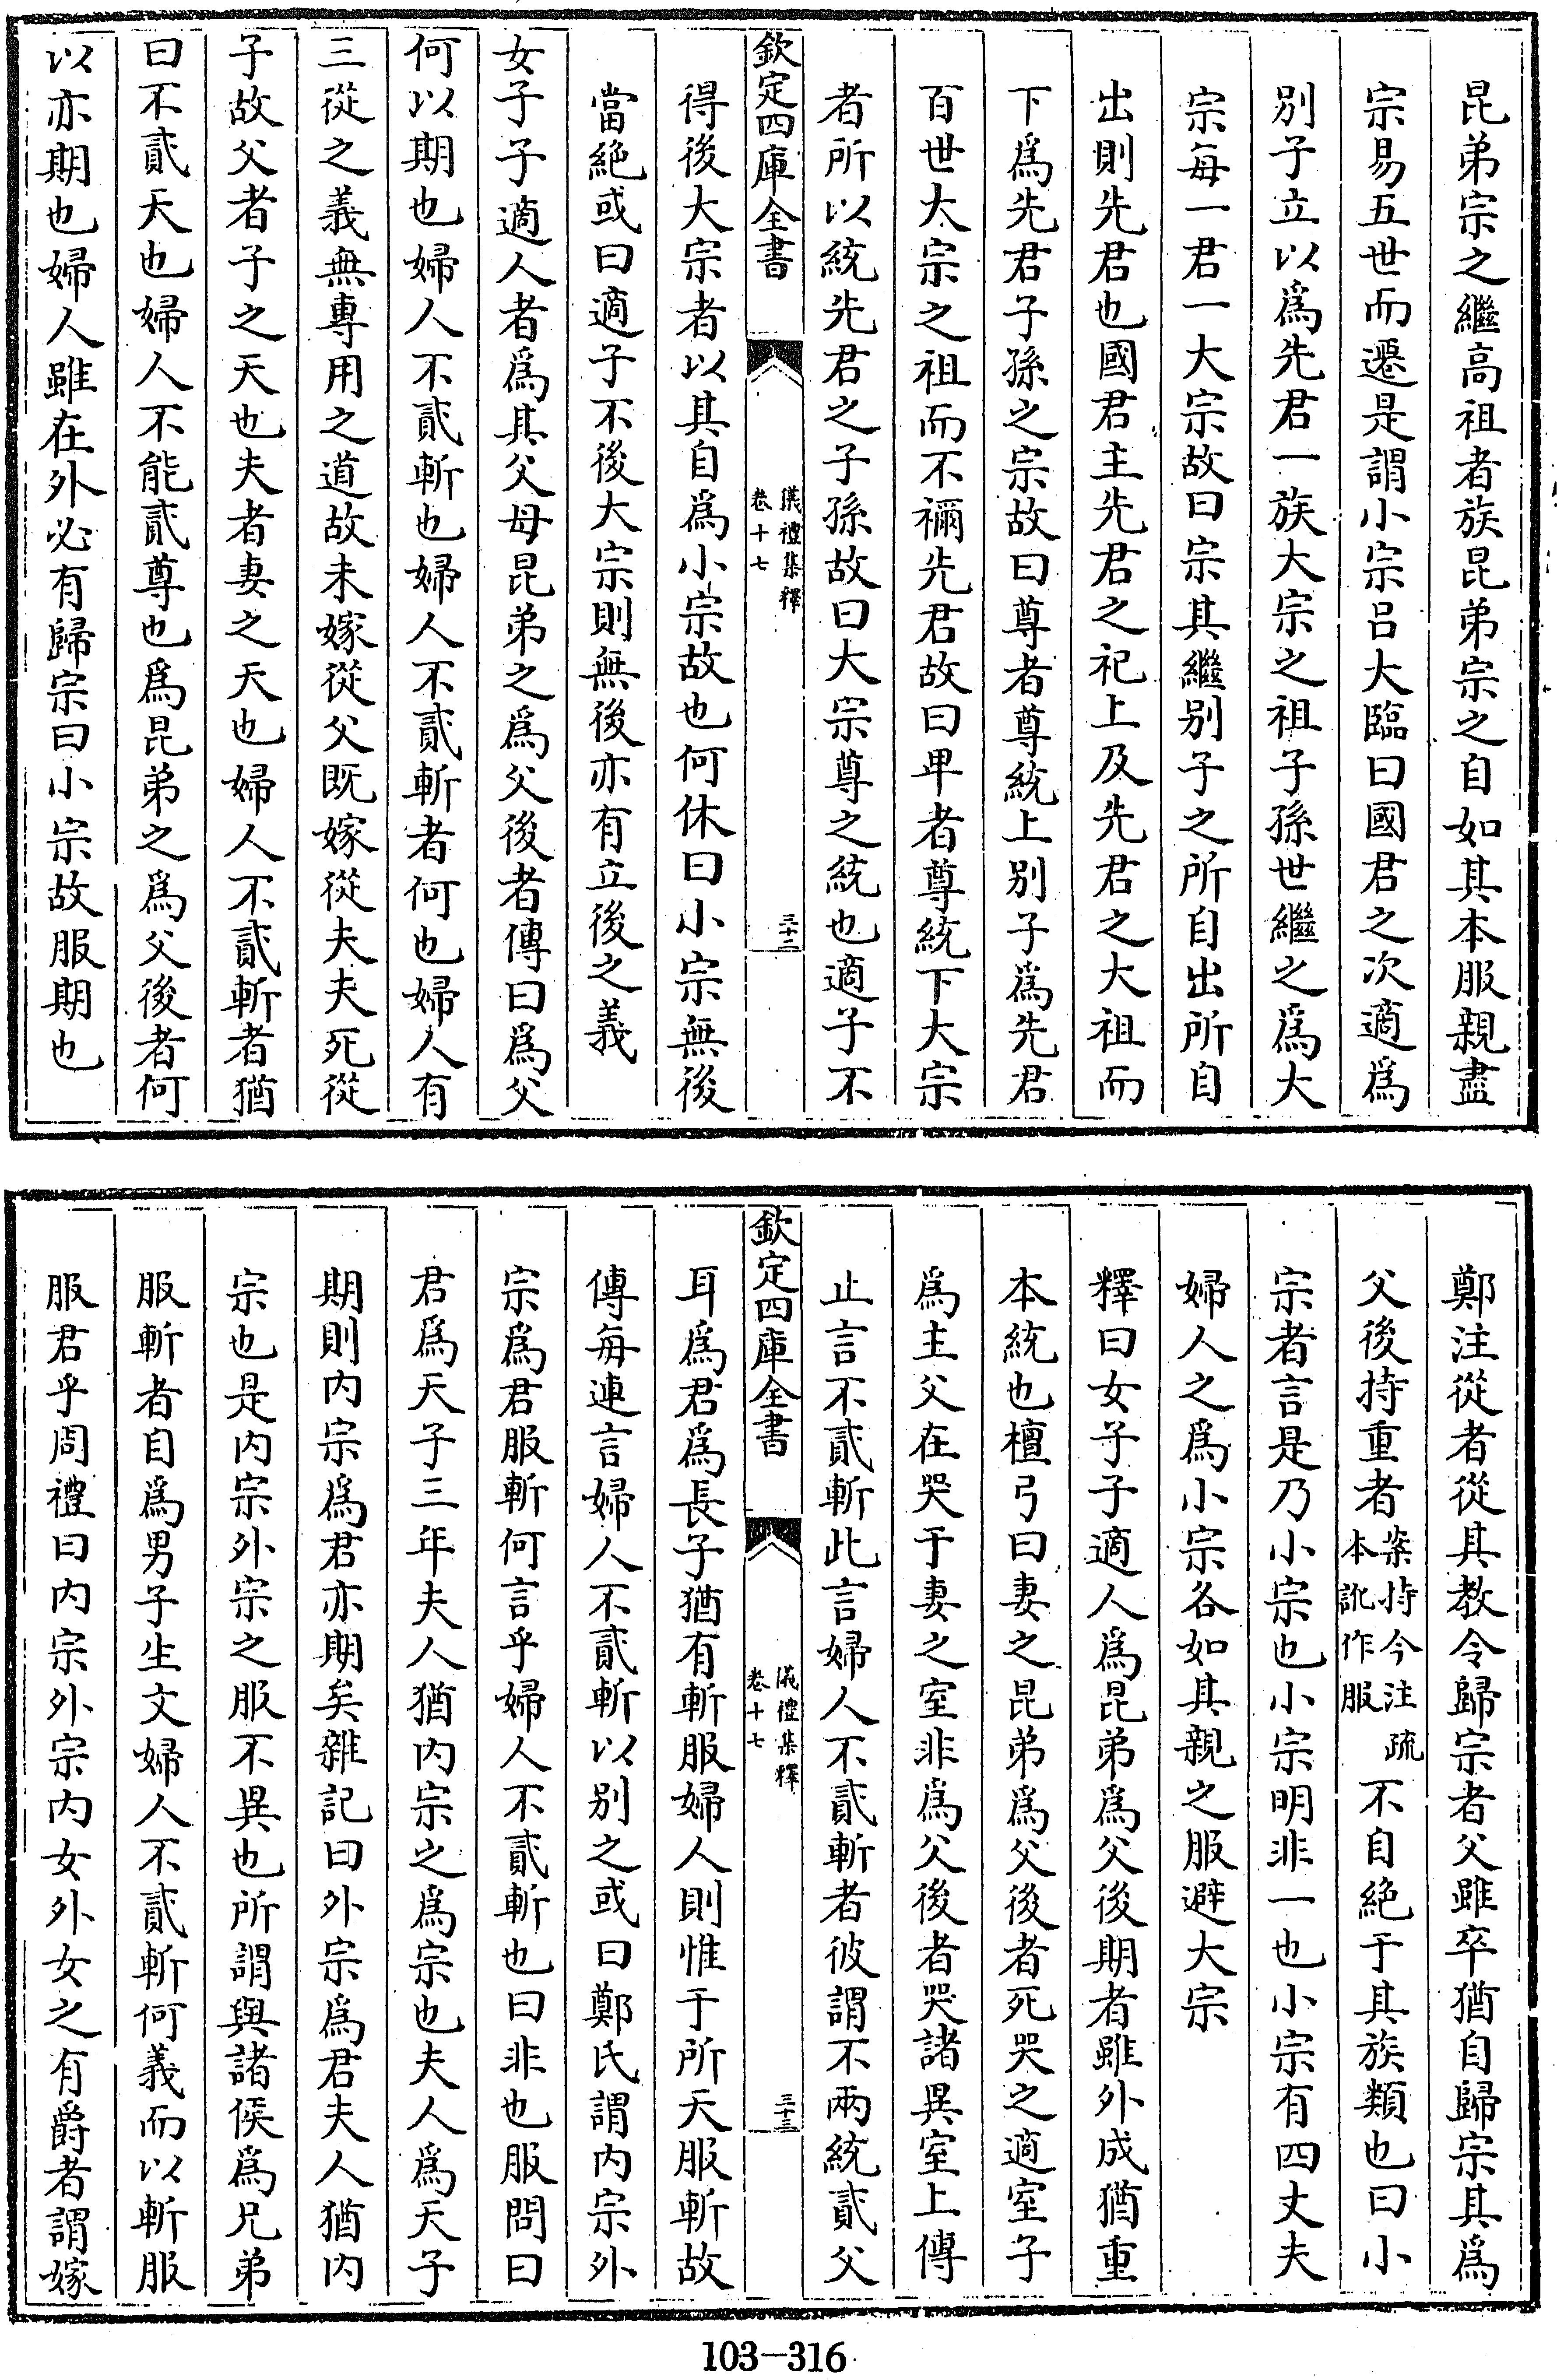 昆弟宗之繼高祖者族昆弟宗之自如其本服親盡
宗易五世而遷是謂小宗吕大臨曰國君之次適爲
別子立以爲先君一族大宗之祖子孫世繼之爲大
宗每一君一大宗故曰宗其繼別子之所自出所自
出則先君也國君主先君之祀上及先君之大祖而
下爲先君子孫之宗故曰尊者尊統上別子爲先君
百世大宗之祖而不禰先君故曰卑者尊統下大宗
者所以統先君之子孫故曰大宗尊之統也適子不
欽定四庫全書
儀禮集釋
卷十七
三十二
得後大宗者以其自爲小宗故也何休曰小宗無後
當絶或曰適子不後大宗則無後亦有立後之義
女子子適人者爲其父母昆弟之爲父後者傳曰爲父
何以期也婦人不貳斬也婦人不貳斬者何也婦人有
三從之義無專用之道故未嫁從父既嫁從夫夫死從
子故父者子之天也夫者妻之天也婦人不貳斬者猶
曰不貳天也婦人不能貳尊也爲昆弟之爲父後者何
以亦期也婦人雖在外必有歸宗曰小宗故服期也
鄭注從者從其教令歸宗者父雖卒猶自歸宗其爲
父後持重者案持今注疏本訛作服不自絶于其族類也曰小
宗者言是乃小宗也小宗明非一也小宗有四丈夫
婦人之爲小宗各如其親之服避大宗
釋曰女子子適人爲昆弟爲父後期者雖外成猶重
本統也檀弓曰妻之昆弟爲父後者死哭之適室子
爲主父在哭于妻之室非爲父後者哭諸異室上傳
止言不貳斬此言婦人不貳斬者彼謂不兩統貳父
欽定四庫全書
儀禮集釋
卷十七
三十三
耳爲君爲長子猶有斬服婦人則惟于所天服斬故
傳每連言婦人不貳斬以別之或曰鄭氏謂内宗外
宗爲君服斬何言乎婦人不貳斬也曰非也服問曰
君爲天子三年夫人猶内宗之爲宗也夫人爲天子
期則内宗爲君亦期矣雜記曰外宗爲君夫人猶内
宗也是内宗外宗之服不異也所謂與諸侯爲兄弟
服斬者自爲男子生文婦人不貳斬何義而以斬服
服君乎周禮曰内宗外宗内女外女之有爵者謂嫁
103-316